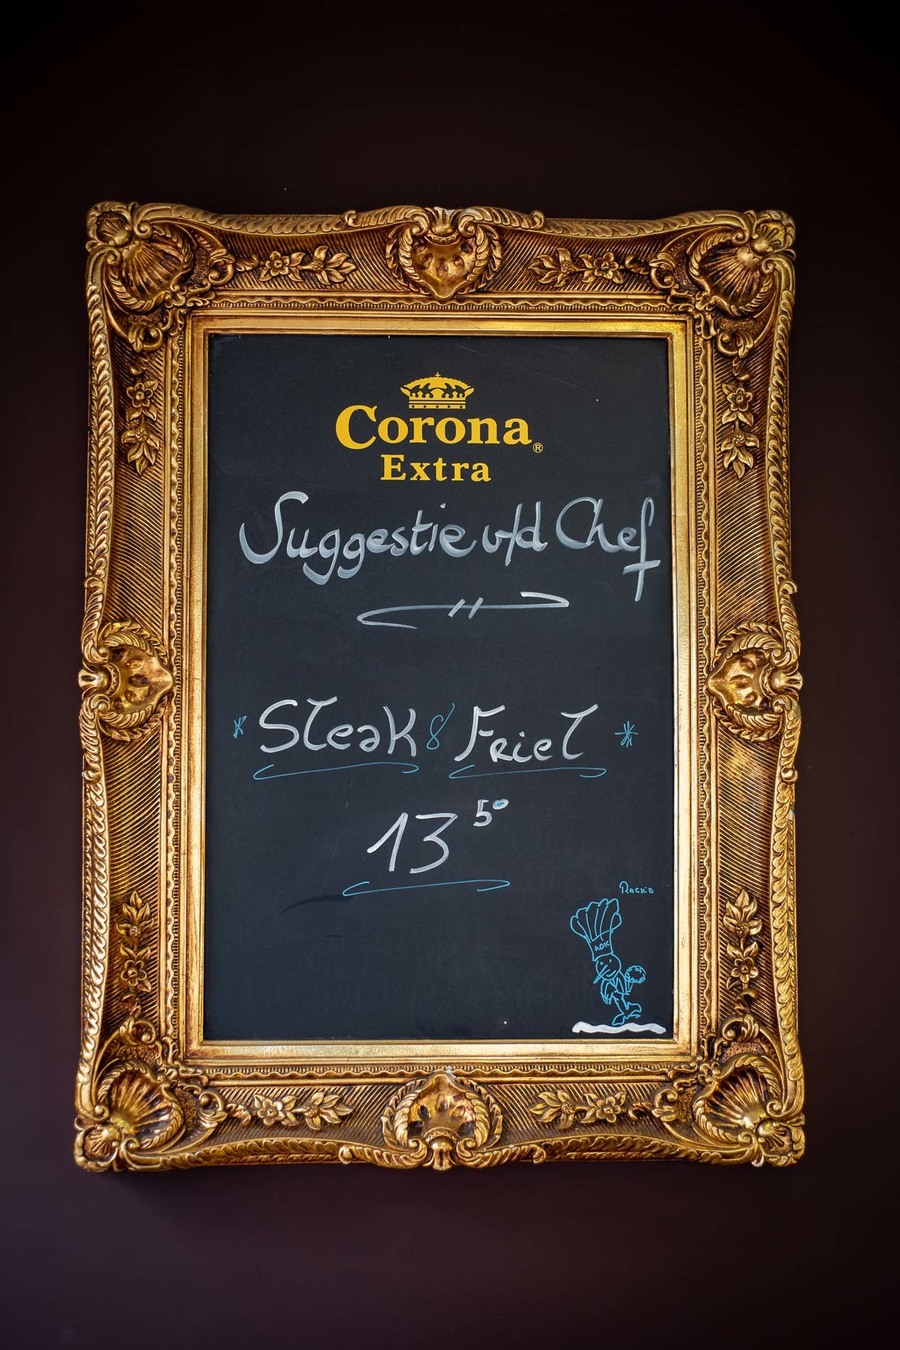 Corona®
Extra
Suggestie v/d Chef
* Steak & Friet *
13⁵⁰